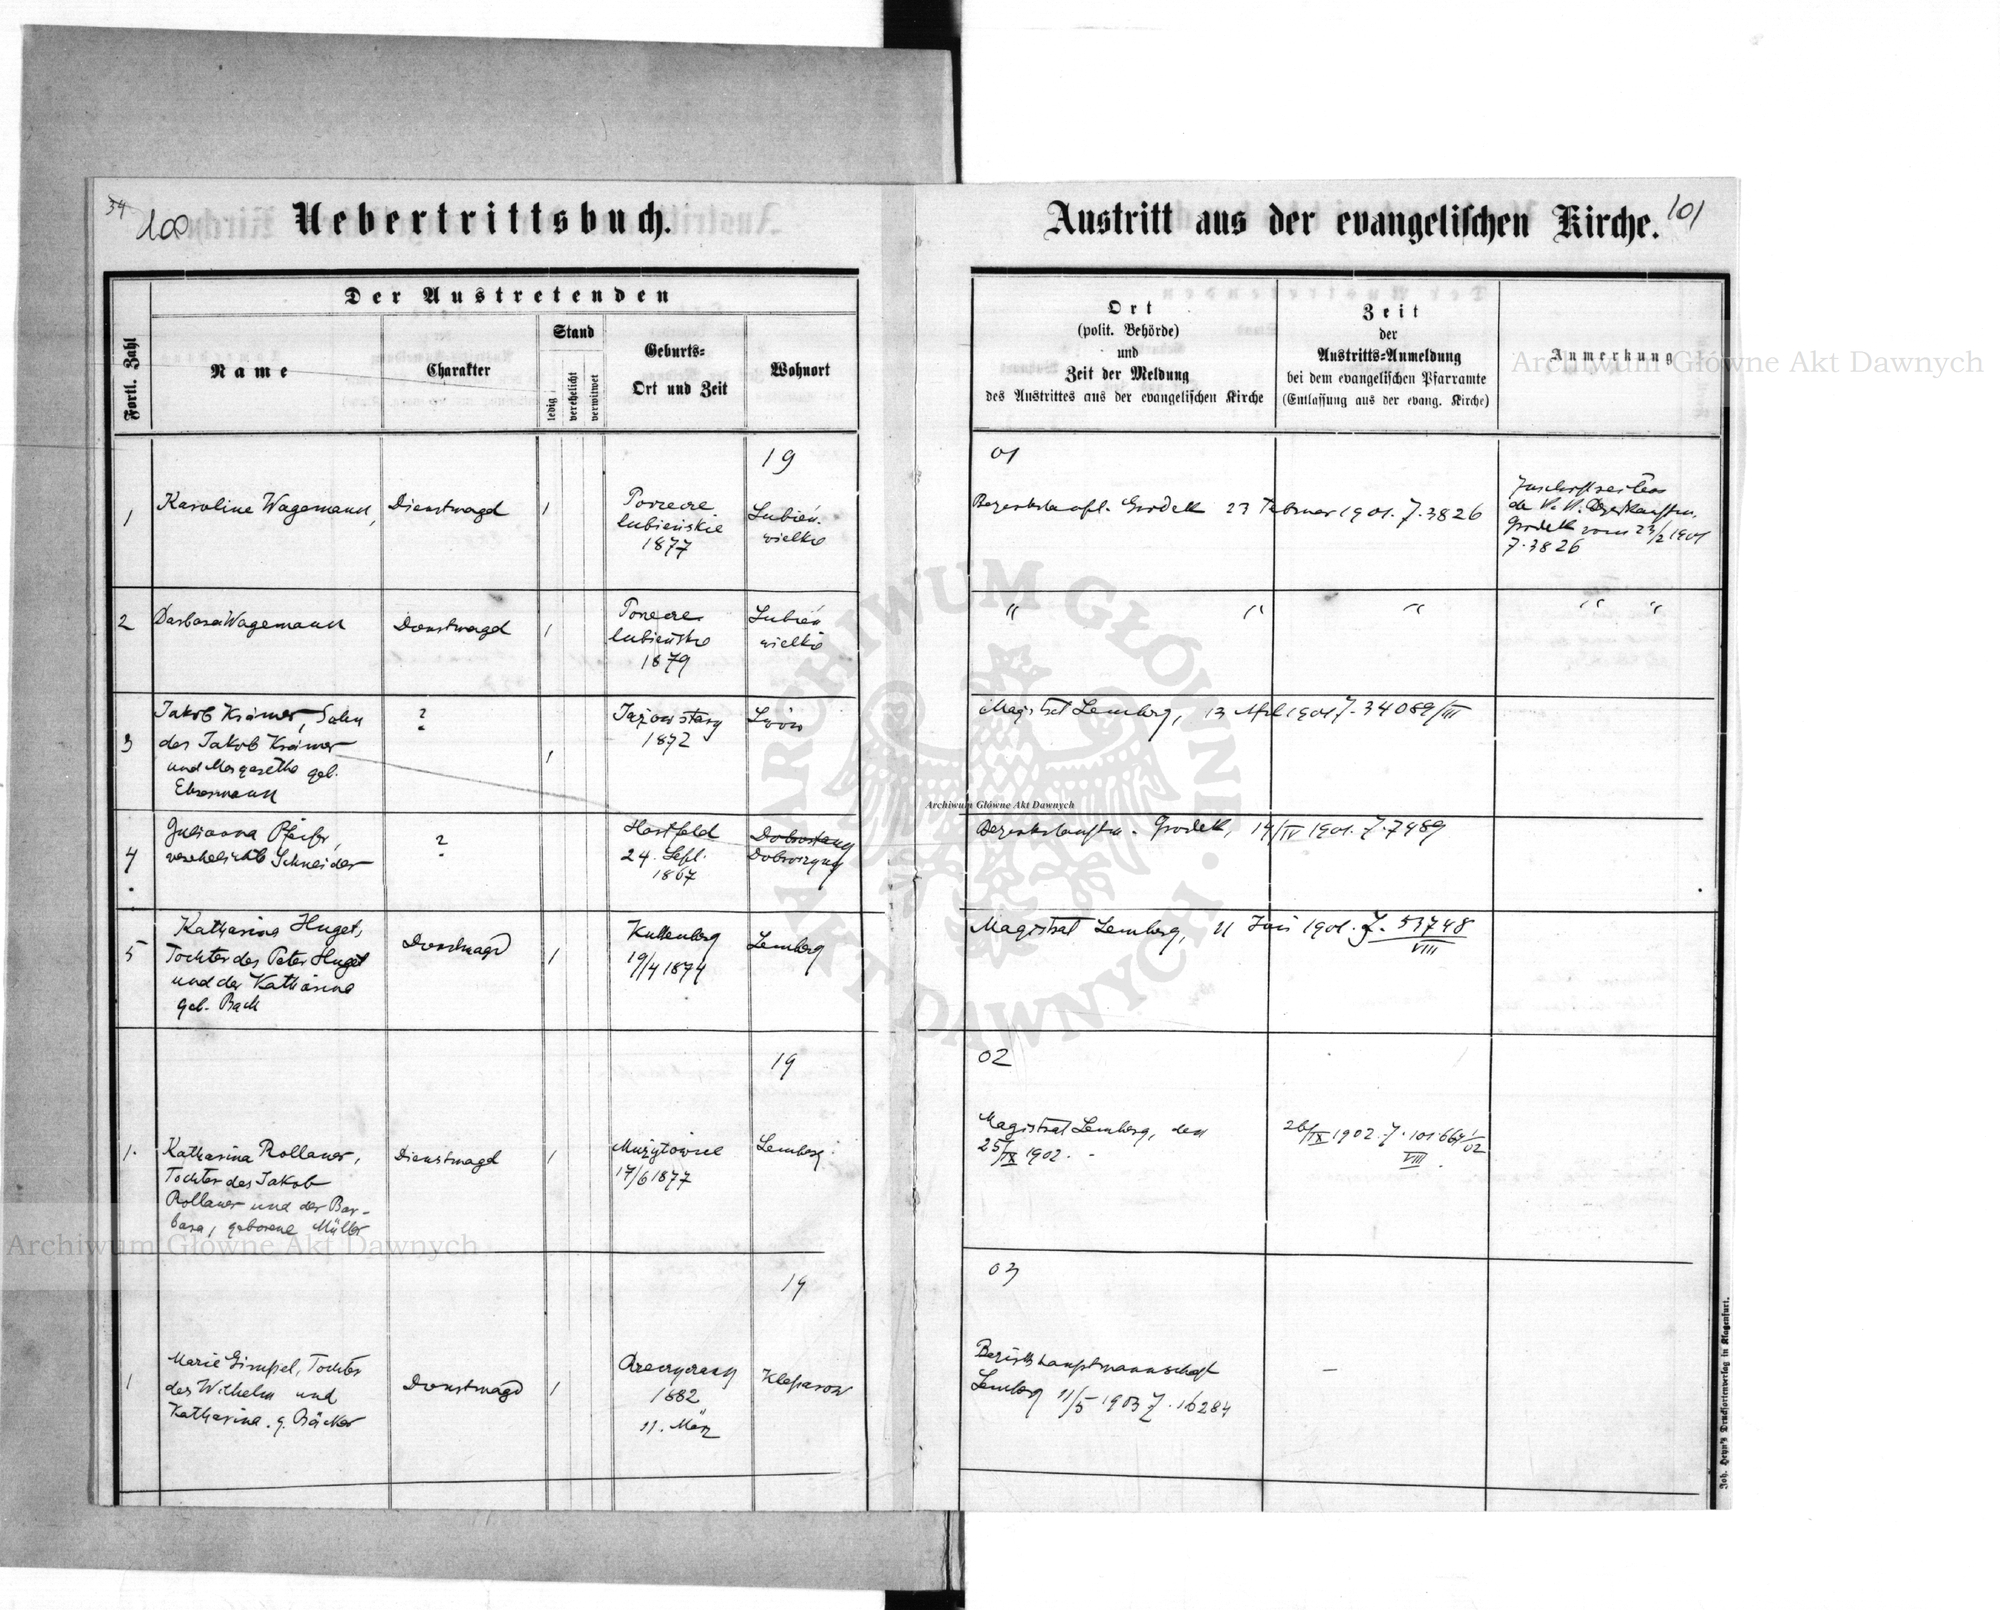 34
100
Uebertrittsbuch.
Der Austretenden
Fortl. Zahl
Name
Charakter
Stand
ledig
verehelicht
verwitwet
Geburts-
Ort und Zeit
Wohnort
19
1
Karoline Wagemann,
Dienstmagd
1
lubieńskie
1877
Lubień
wielki
2
Barbara Wagemann
Dienstmagd
1
1879
Lubień
wielki
3
Jakob Krämer, Sohn
des Jakob Krämer
und Margaretha geb.
Ehresmann
?
1
1872
Lwów
4
Julianna Pfeifer,
verehelichte Schneider
?
Hartfeld
24. Sept.
1867
Dobrostany
5
Katharina Huget,
Tochter des Peter Huget
und der Katharina
geb. Bach
Dienstmagd
1
Kuttenberg
19/4 1874
Lemberg
19
1.
Katharina Rollauer,
Tochter des Jakob
Rollauer und der Bar-
bara, geborene Müller
Dienstmagd
1
Mużyłowice
17/6 1877
Lemberg
19
1
Marie Gimpel, Tochter
des Wilhelm und
Katharina g. Bäcker
Dienstmagd
1
1882
11. März
Kleparow
101
Austritt aus der evangelischen Kirche.
Ort
(polit. Behörde)
und
Zeit der Meldung
des Austrittes aus der evangelischen Kirche
Zeit
der
Austritts-Anmeldung
bei dem evangelischen Pfarramte
(Entlassung aus der evang. Kirche)
Anmerkung
01
Bezirkshauptm. Grodek 23 Februar 1901. Z. 3826
Zuschrift seitens
der k. k. Bezirkshauptm.
Grodek vom 23/2 1901
Z. 3826
" " " " "
Magistrat Lemberg, 13 April 1901 Z. 34089/III
Bezirkshauptm. Grodek, 14/IV 1901. Z. 7489
Magistrat Lemberg, 11 Juni 1901. Z. 53748
VIII
02
Magistrat Lemberg, den
25/IX 1902. -
26/IX 1902. Z. 101.664/02
VIII
03
Bezirkshauptmannschaft
Lemberg 11/5 1903 Z. 16284
–
Joh. Heyn's Drucksortenverlag in Klagenfurt.
Archiwum Główne Akt Dawnych
Archiwum Główne Akt Dawnych
Archiwum Główne Akt Dawnych
ARCHIWUM GŁÓWNE AKT DAWNYCH